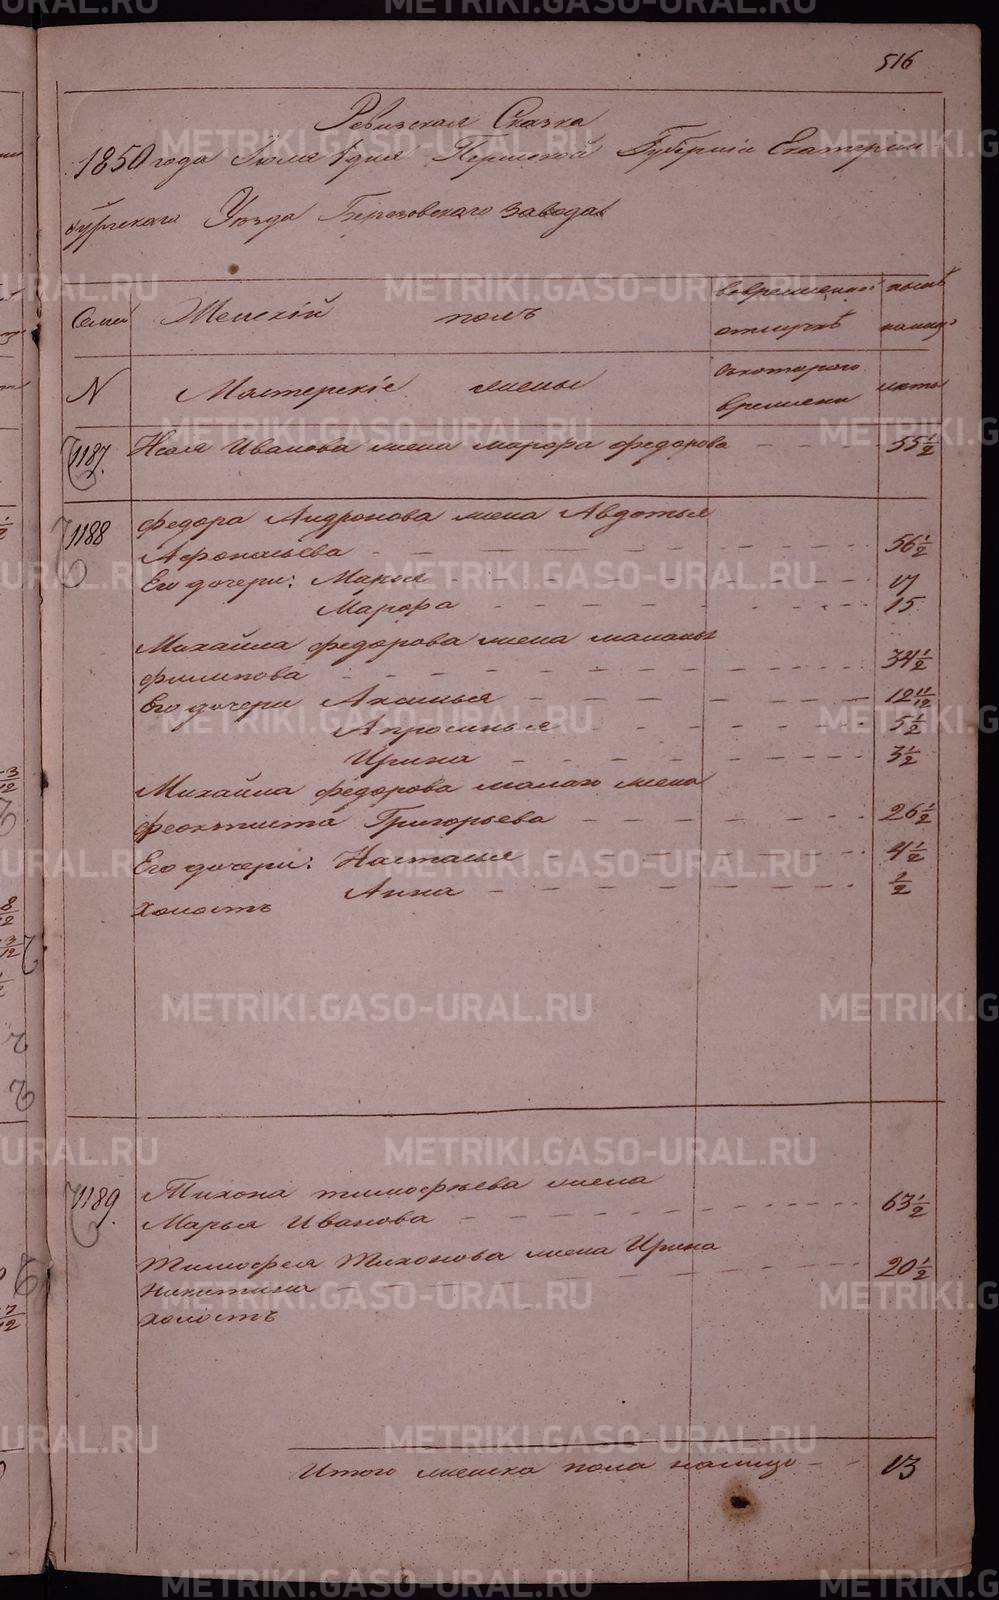 516
Ревизская Сказка
1850 года Июля дня Пермской Губернiи Екатерин
бургскаго Уезда Березовскаго Завода
Семьи Женскiй полъ во временной отлучкѣ ныне налицо
N Мастерскiе жены съ котораго времени лета
1187. Исая Иванова жена Марфа Федорова 55 1/2
1188 Федора Андронова жена Авдотья
Афонасьева 56 1/2
Его дочери: Марья 17
Марфа 15
Михайла Федорова жена Маланья
Филипова 34 1/2
Его дочери Аксинья 12 11/12
Апросинья 5 1/2
Ирина 3 1/2
Михайла Федорова малаго жена
Феоктиста Григорьева 26 1/2
Его дочери: Насталья 4 1/2
Анна 1/2
Холостъ
1189. Тихона Тимофѣева жена
Марья Иванова 63 1/2
Тимофея Тихонова жена Ирина
Никитина 20 1/2
Холостъ
Итого женска пола налицо 13
METRIKI.GASO-URAL.RU